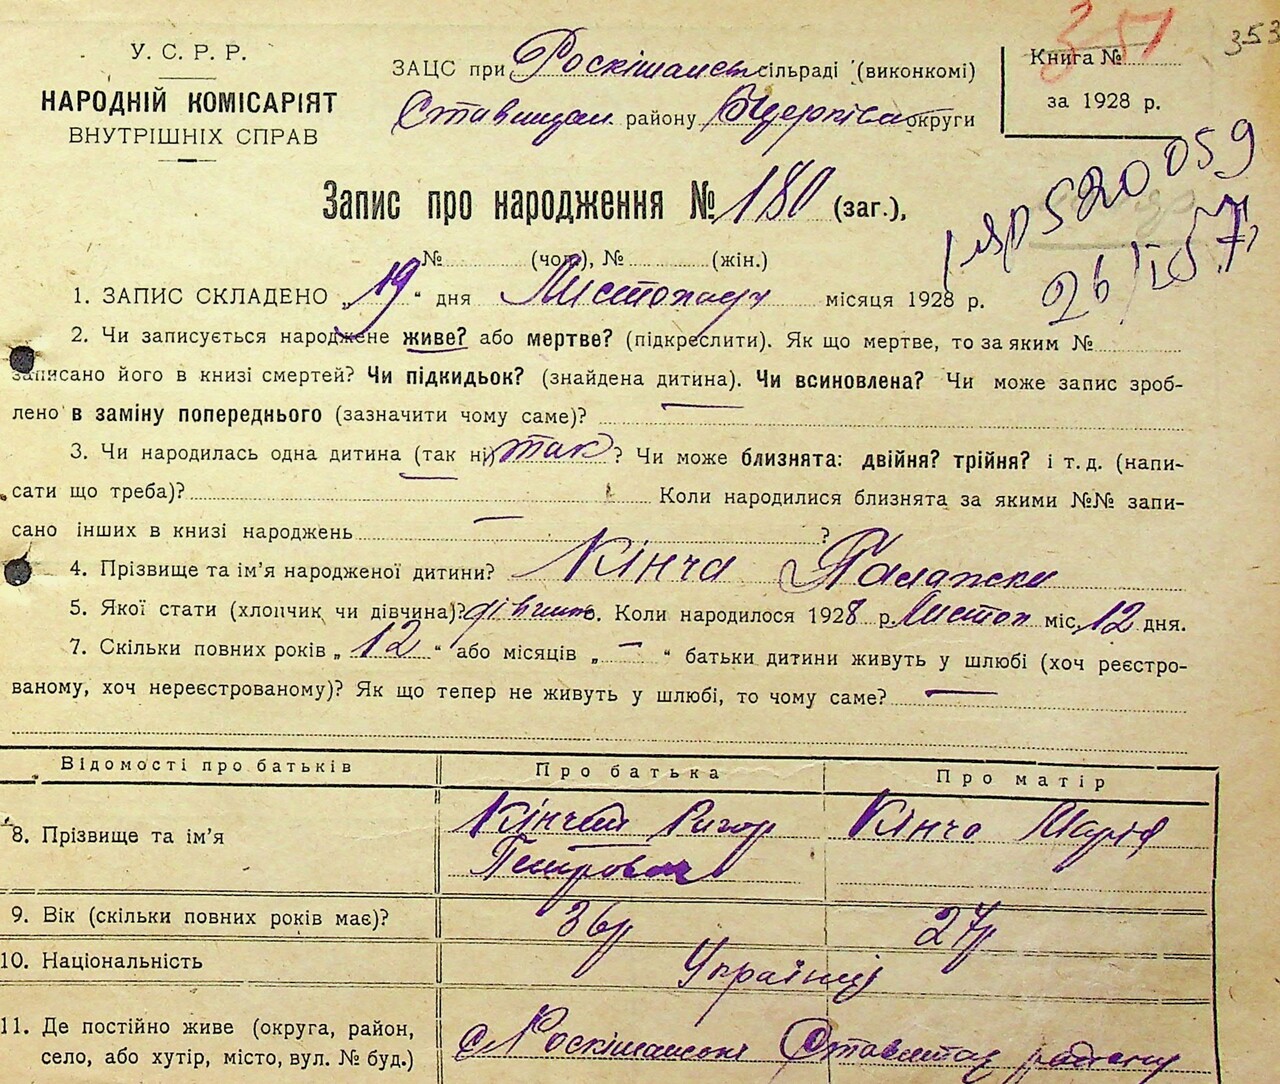 351
353
У. С. Р. Р.
НАРОДНІЙ КОМІСАРІЯТ
ВНУТРІШНІХ СПРАВ
ЗАЦС при Роскішанск сільраді (виконкомі)
Ставищан району Білцерківс округи
Книга №
за 1928 р.
Запис про народження № 180 (заг.),
520059
№ (чол), № (жін.)
1. ЗАПИС СКЛАДЕНО „19“ дня Листопаду місяця 1928 р.
2. Чи записується народжене живе? або мертве? (підкреслити). Як що мертве, то за яким №
записано його в книзі смертей? Чи підкидьок? (знайдена дитина). Чи всиновлена? Чи може запис зроб-
лено в заміну попереднього (зазначити чому саме)? —
3. Чи народилась одна дитина (так ні) так ? Чи може близнята: двійня? трійня? і т. д. (напи-
сати що треба)? Коли народилися близнята за якими №№ запи-
сано інших в книзі народжень — ?
4. Прізвище та ім'я народженої дитини? Кінча Палажка
5. Якої стати (хлопчик чи дівчина)? дівчина. Коли народилося 1928 р. Листоп міс. 12 дня.
7. Скільки повних років „12“ або місяців „—“ батьки дитини живуть у шлюбі (хоч реєстро-
ваному, хоч нереєстрованому)? Як що тепер не живуть у шлюбі, то чому саме? —
Відомості про батьків Про батька Про матір
8. Прізвище та ім'я Кінча Ригор Кінча Марія
Петрович
9. Вік (скільки повних років має)? 36р 27р
10. Національність Українці
11. Де постійно живе (округа, район,
село, або хутір, місто, вул. № буд.) с Роскішанські Ставищан району